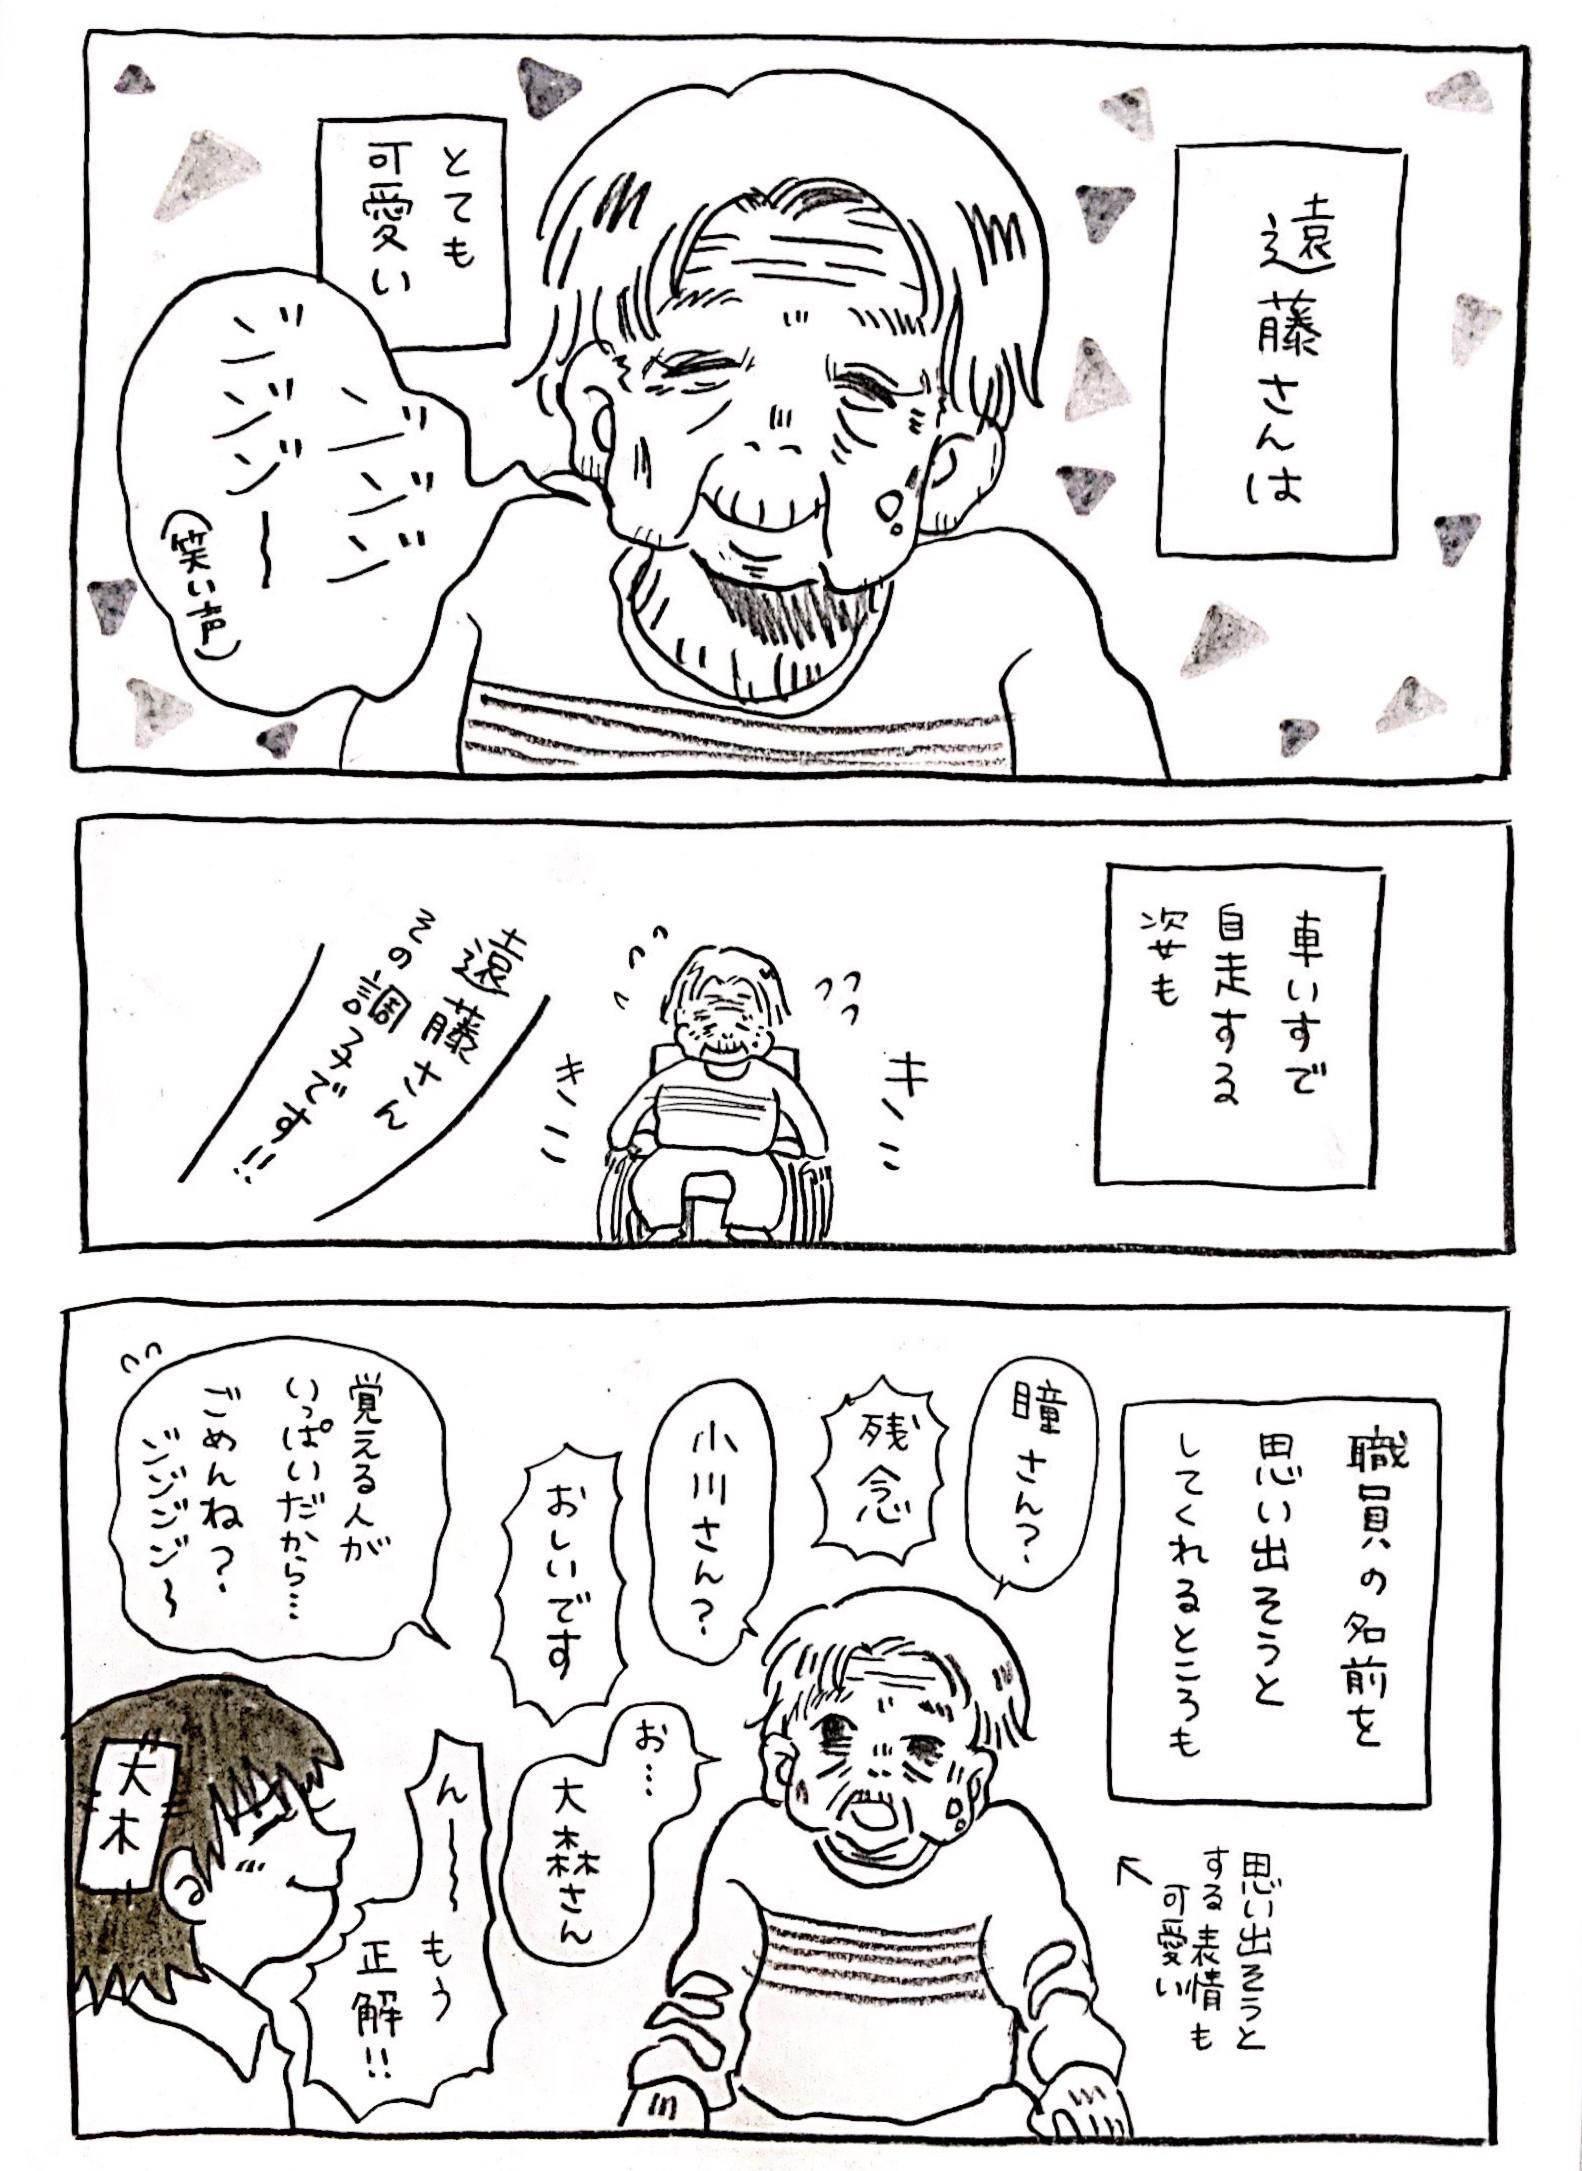 遠藤さんは
とても
可愛い
ジジジ
ジジジ〜
(笑い声)
車いすで
自走する
姿も
キコ
キコ
遠藤さん
その調子です!!
職員の名前を
思い出そうと
してくれるところも
思い出そうと
する表情も
可愛い
瞳さん?
残念
小川さん?
おしいです
お…
大森さん
ん〜〜もう
正解!!
覚える人が
いっぱいだから…
ごめんね?
ジジジジ〜
大木